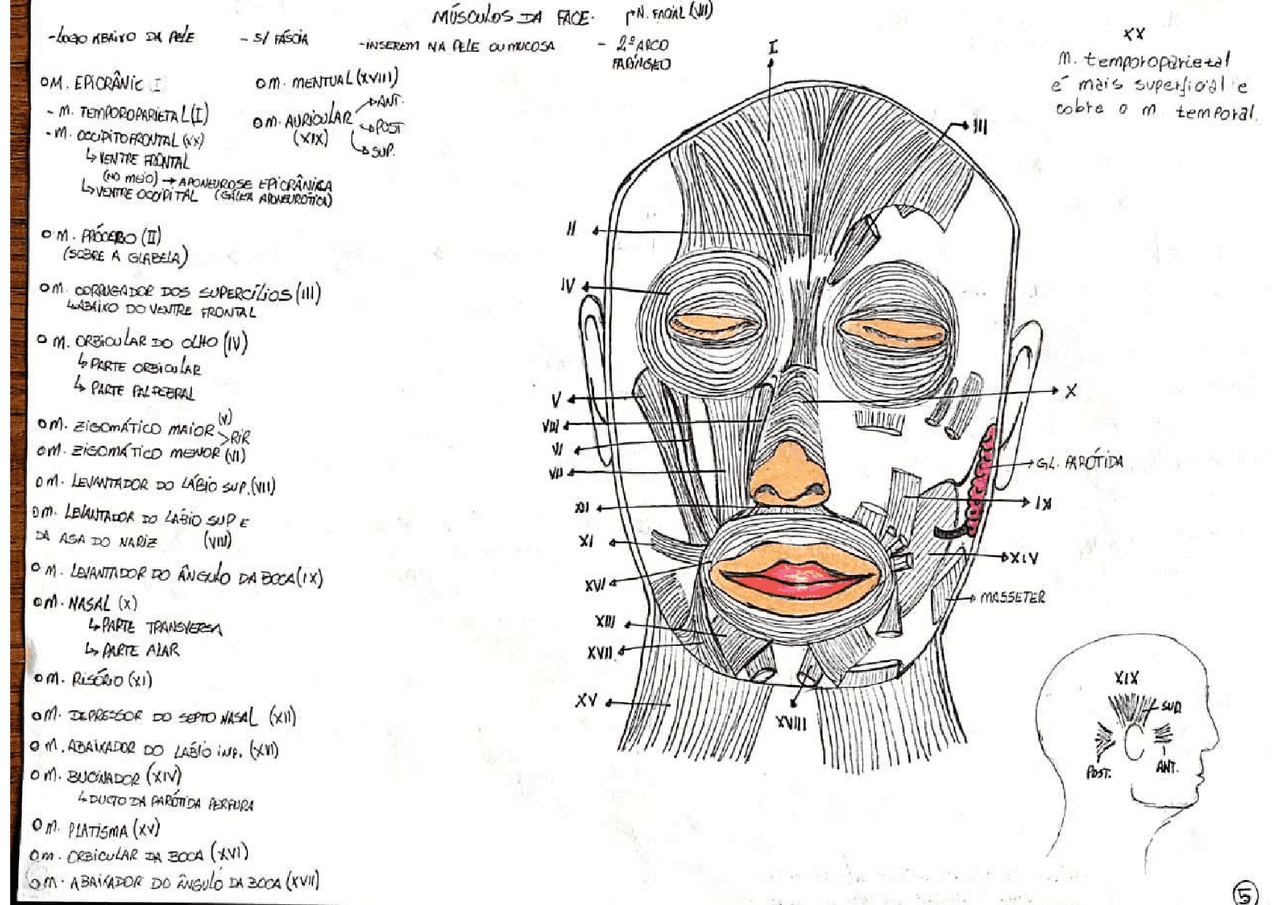 MÚSCULOS DA FACE.
N. FACIAL (VII)
- LOGO ABAIXO DA PELE
- S/ FÁSCIA
- INSEREM NA PELE OU MUCOSA
- 2º ARCO
FARÍNGEO
M. EPICRÂNIC I
- M. TEMPOROPARIETAL (I)
- M. OCCIPITOFRONTAL (XX)
↳ VENTRE FRONTAL
(NO MEIO) → APONEUROSE EPICRÂNICA
↳ VENTRE OCCIPITAL (GÁLEA APONEURÓTICA)
M. MENTUAL (XVIII)
M. AURICULAR
(XIX)
ANT.
POST
SUP.
M. PRÓCERO (II)
(SOBRE A GLABELA)
M. CORRUGADOR DOS SUPERCÍLIOS (III)
↳ ABAIXO DO VENTRE FRONTAL
M. ORBICULAR DO OLHO (IV)
↳ PARTE ORBICULAR
↳ PARTE PALPEBRAL
M. ZIGOMÁTICO MAIOR (V)
> RIR
M. ZIGOMÁTICO MENOR (VI)
M. LEVANTADOR DO LÁBIO SUP. (VII)
M. LEVANTADOR DO LÁBIO SUP E
DA ASA DO NARIZ (VIII)
M. LEVANTADOR DO ÂNGULO DA BOCA (IX)
M. NASAL (X)
↳ PARTE TRANSVERSA
↳ PARTE ALAR
M. RISÓRIO (XI)
M. DEPRESSOR DO SEPTO NASAL (XII)
M. ABAIXADOR DO LÁBIO INF. (XVI)
M. BUCINADOR (XIV)
↳ DUCTO DA PARÓTIDA PERFURA
M. PLATISMA (XV)
M. ORBICULAR DA BOCA (XVI)
M. ABAIXADOR DO ÂNGULO DA BOCA (XVII)
I
III
II
IV
V
VIII
VI
VII
XII
XI
XVI
XIII
XVII
XV
XVIII
X
GL. PARÓTIDA
IX
XIV
MASSETER
XX
m. temporoparietal
é mais superficial e
cobre o m. temporal.
XIX
SUP.
POST.
ANT.
5